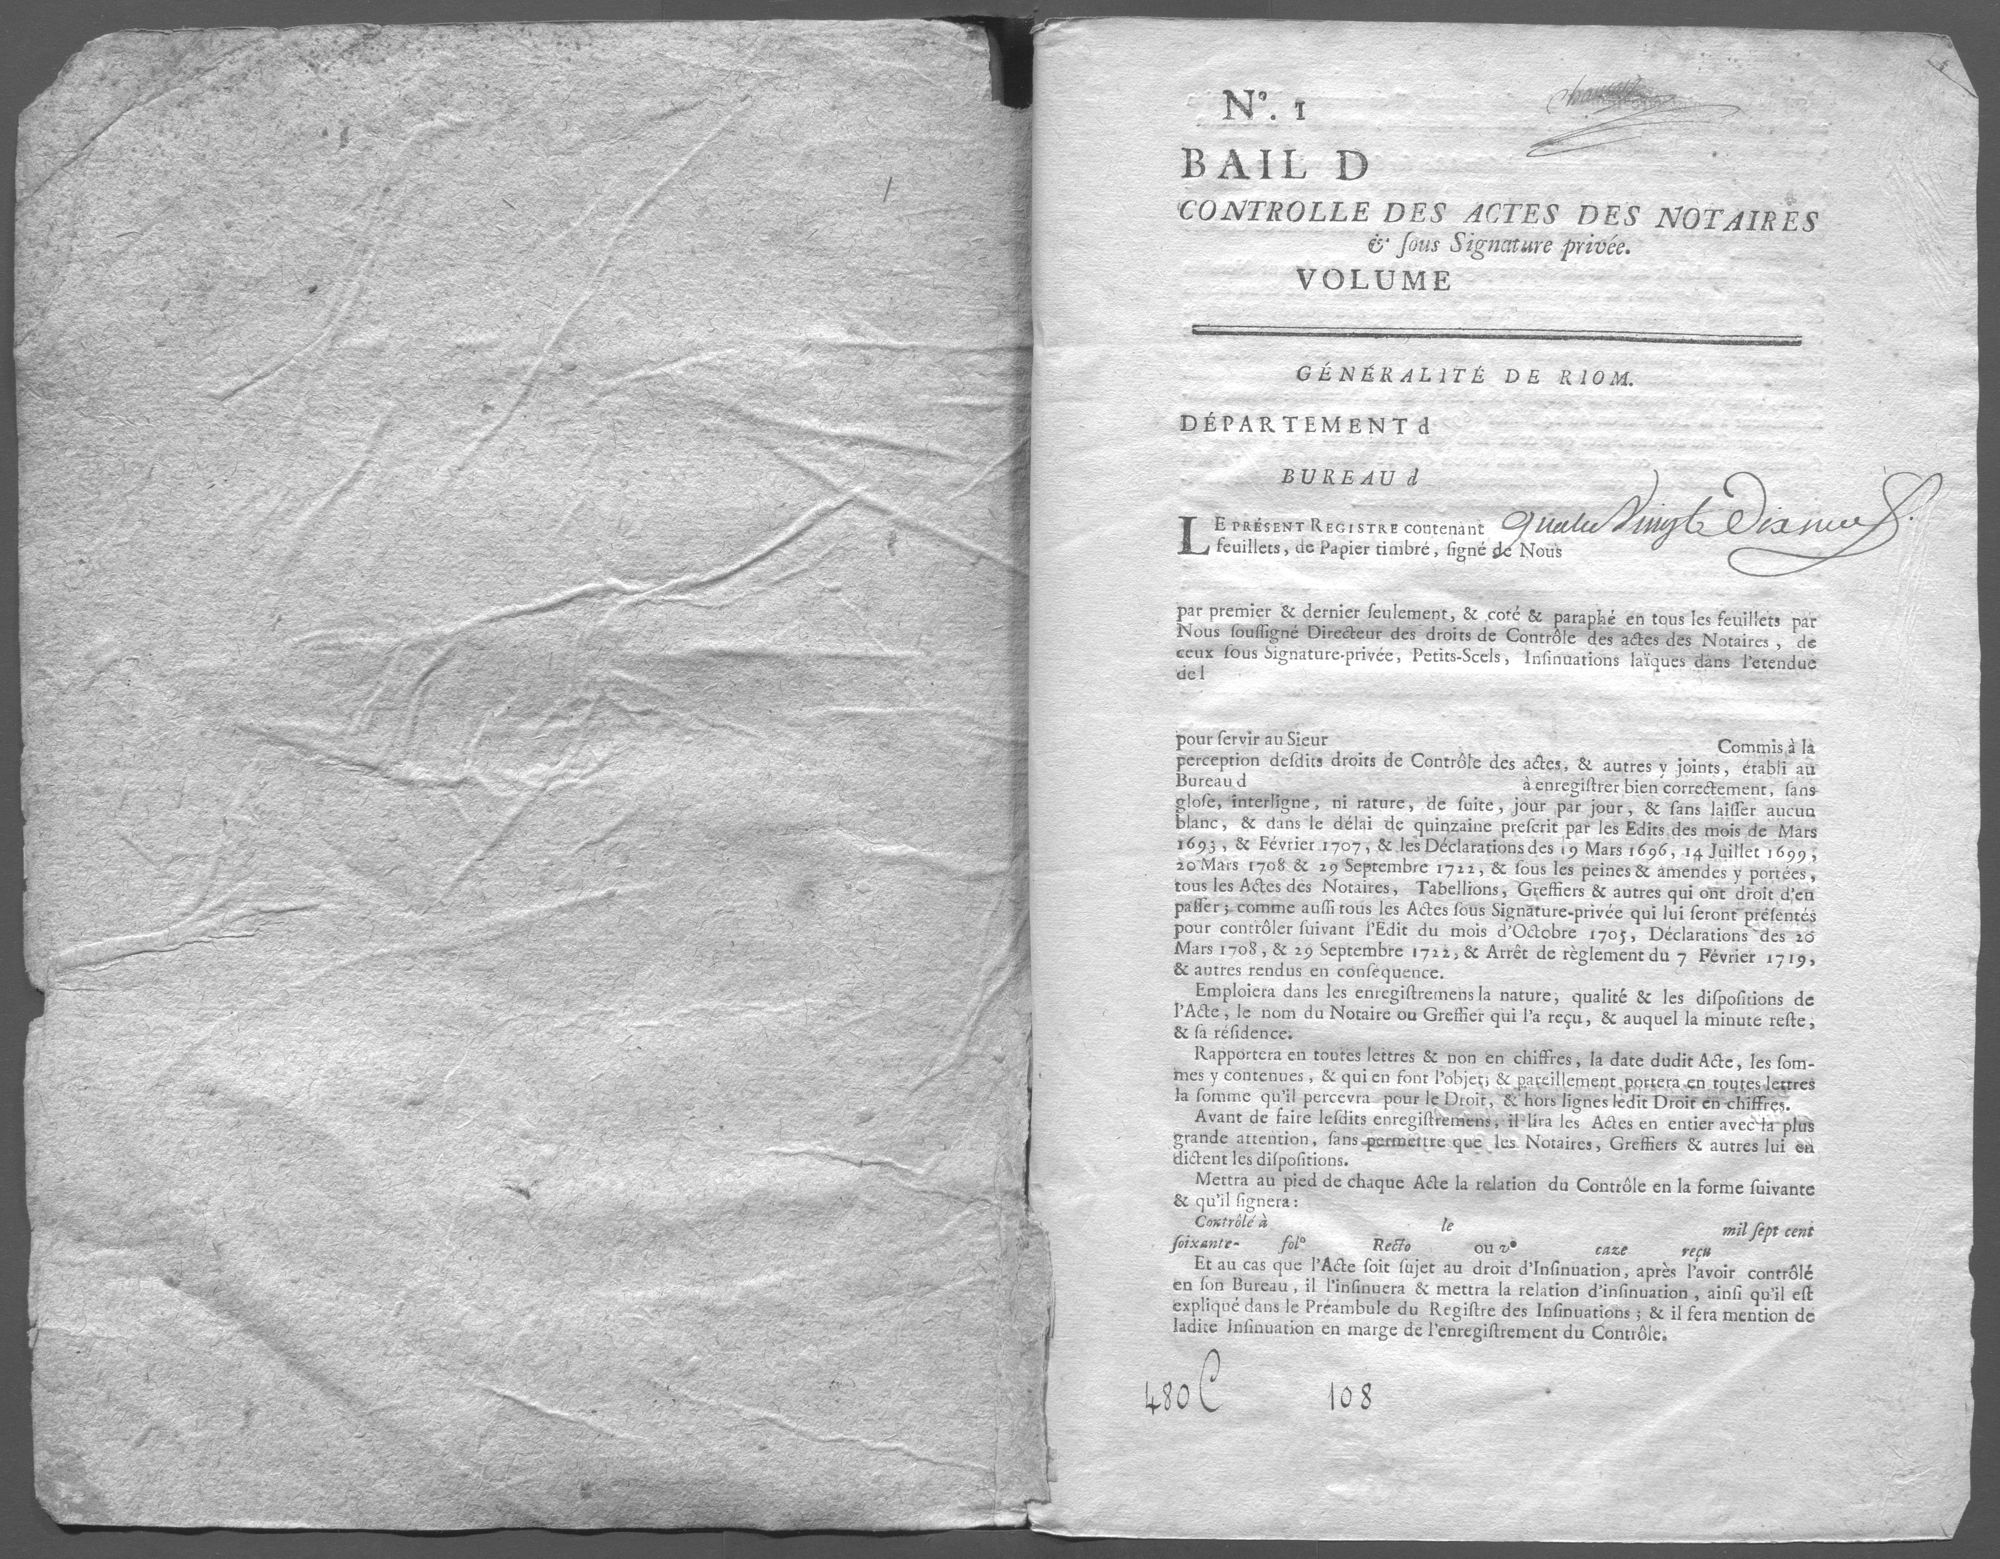 N°. 1
BAIL D
CONTROLLE DES ACTES DES NOTAIRES
& ſous Signature privée.
VOLUME
GÉNÉRALITÉ DE RIOM.
DÉPARTEMENT d
BUREAU d
LE PRÉSENT REGISTRE contenant quatre Vingt Dix neuf
feuillets, de Papier timbré, ſigné de Nous
par premier & dernier ſeulement, & coté & paraphé en tous les feuillets par
Nous ſouſſigné Directeur des droits de Contrôle des actes des Notaires, de
ceux ſous Signature-privée, Petits-Scels, Inſinuations laïques dans l'etendue
de l
pour ſervir au Sieur Commis à la
perception deſdits droits de Contrôle des actes, & autres y joints, établi au
Bureau d à enregiſtrer bien correctement, ſans
gloſe, interligne, ni rature, de ſuite, jour par jour, & ſans laiſſer aucun
blanc, & dans le délai de quinzaine preſcrit par les Edits des mois de Mars
1693, & Février 1707, & les Déclarations des 19 Mars 1696, 14 Juillet 1699,
20 Mars 1708 & 29 Septembre 1722, & ſous les peines & amendes y portées,
tous les Actes des Notaires, Tabellions, Greffiers & autres qui ont droit d'en
paſſer; comme auſſi tous les Actes ſous Signature-privée qui lui ſeront préſentés
pour contrôler ſuivant l'Edit du mois d'Octobre 1705, Déclarations des 20
Mars 1708, & 29 Septembre 1722, & Arrêt de règlement du 7 Février 1719,
& autres rendus en conſéquence.
Emploiera dans les enregiſtremens la nature, qualité & les diſpoſitions de
l'Acte, le nom du Notaire ou Greffier qui l'a reçu, & auquel la minute reſte,
& ſa réſidence.
Rapportera en toutes lettres & non en chiffres, la date dudit Acte, les ſom-
mes y contenues, & qui en font l'objet; & pareillement portera en toutes lettres
la ſomme qu'il percevra pour le Droit, & hors lignes ledit Droit en chiffres.
Avant de faire leſdits enregiſtremens, il lira les Actes en entier avec la plus
grande attention, ſans permettre que les Notaires, Greffiers & autres lui en
dictent les diſpoſitions.
Mettra au pied de chaque Acte la relation du Contrôle en la forme ſuivante
& qu'il ſignera:
Contrôlé à le mil ſept cent
ſoixante- fol° Recto ou v° caze reçu
Et au cas que l'Acte ſoit ſujet au droit d'Inſinuation, après l'avoir contrôlé
en ſon Bureau, il l'inſinuera & mettra la relation d'inſinuation, ainſi qu'il eſt
expliqué dans le Préambule du Regiſtre des Inſinuations; & il fera mention de
ladite Inſinuation en marge de l'enregiſtrement du Contrôle.
480 C 108